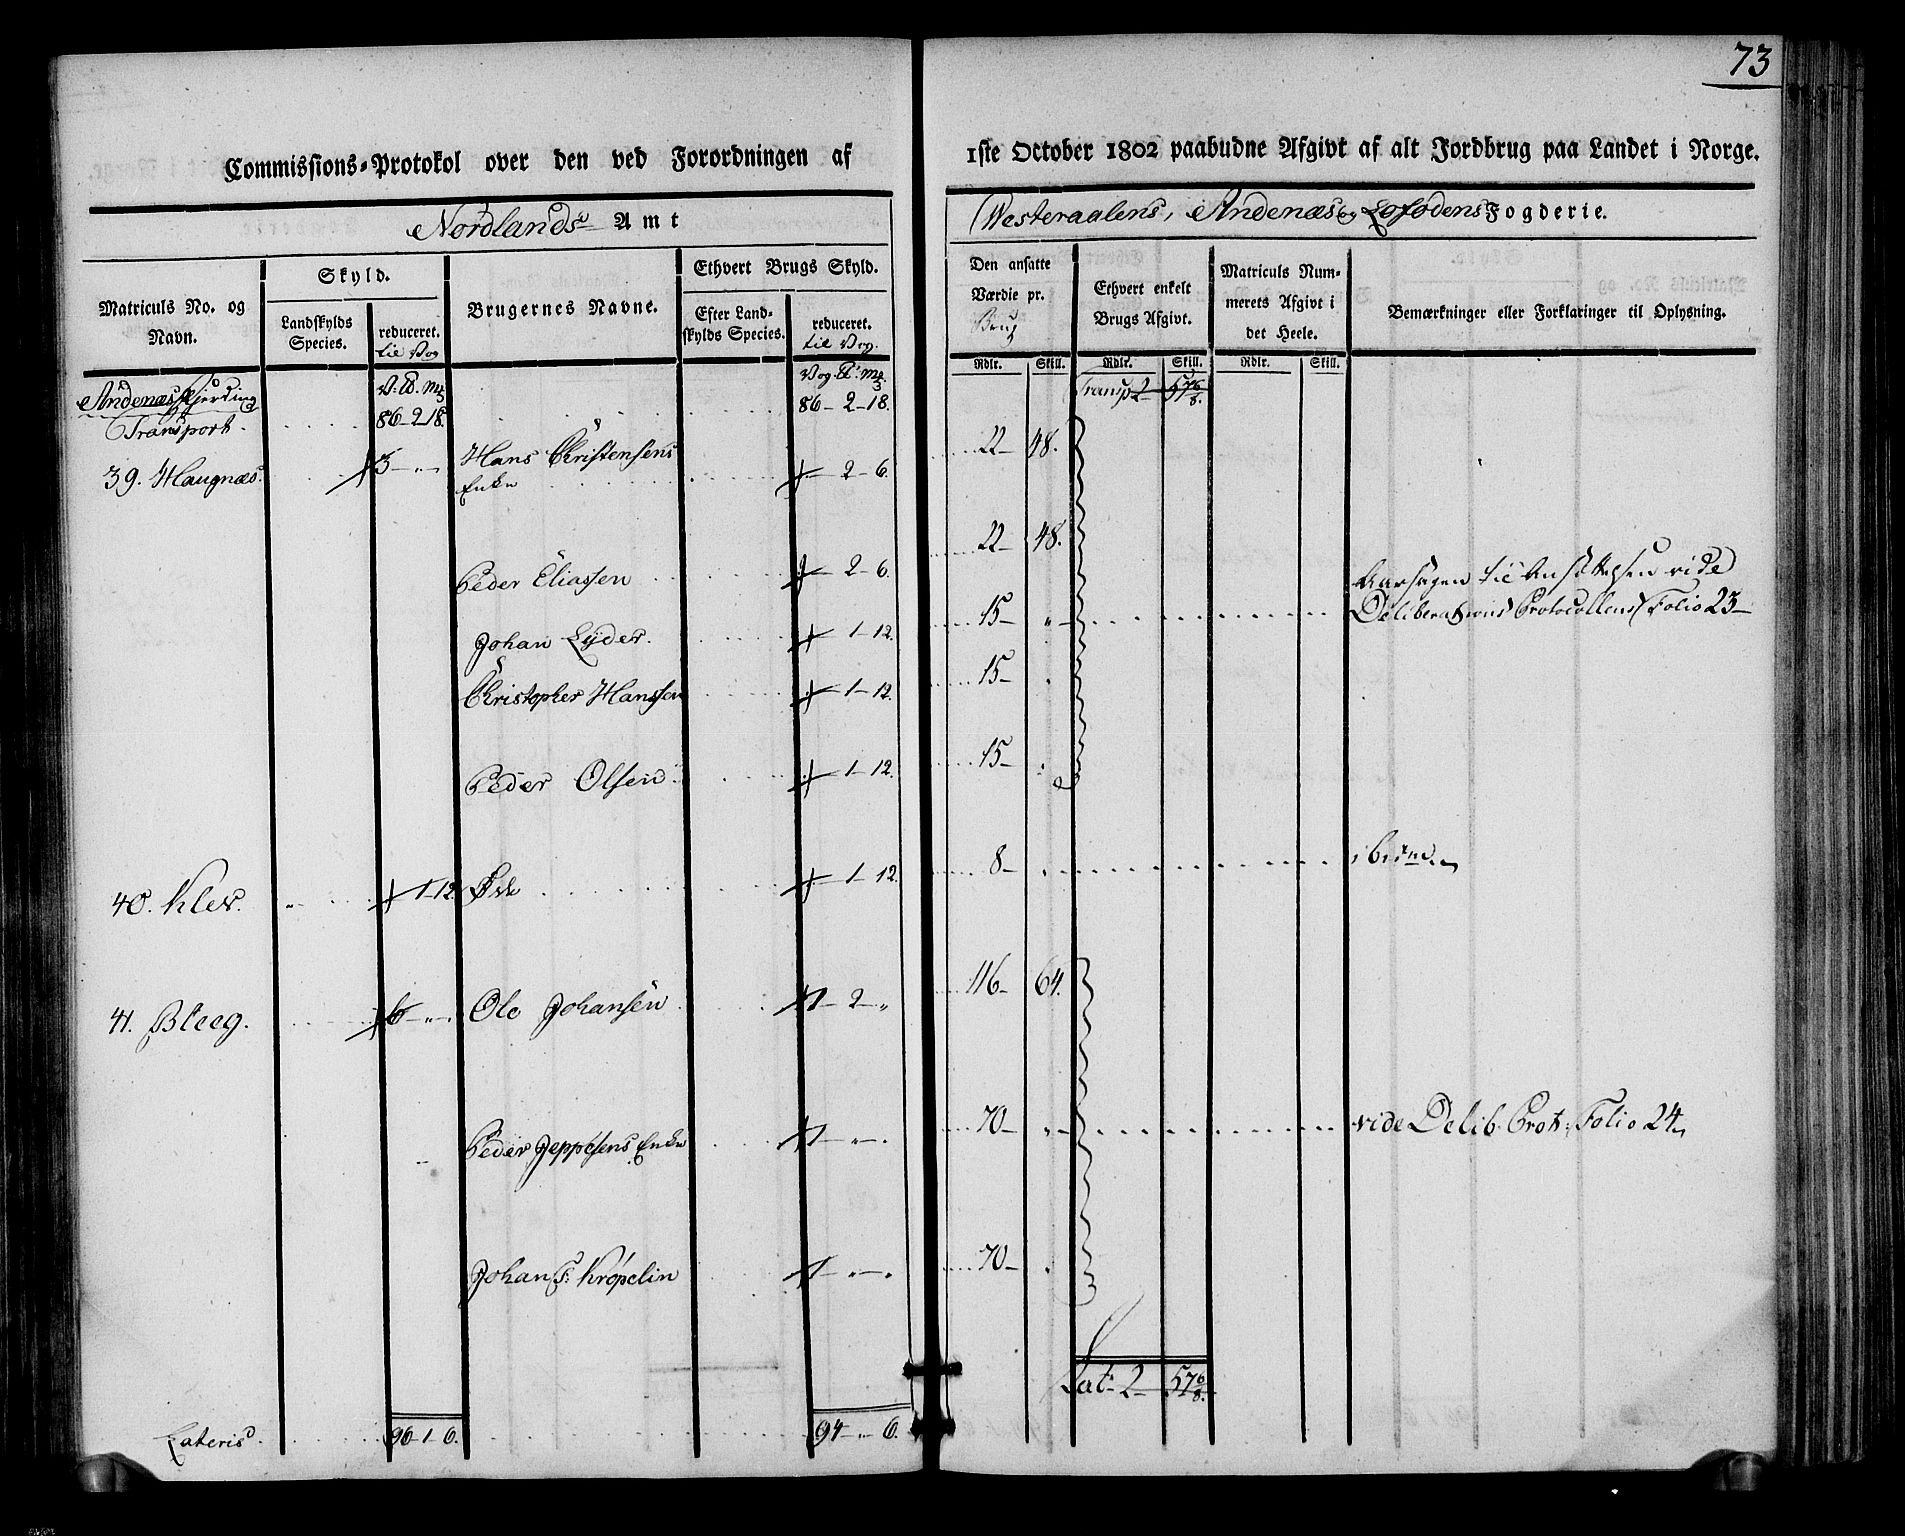 73
Commissions-Protokol over den ved Forordningen af 1ste October 1802 paabudne Afgivt af alt Jordbrug paa Landet i Norge.
Nordlands Amt
Westeraalens, Andenæs og Lofodens Fogderie.
Matriculs No. og Navn.
Skyld.
Landskylds Species.
reduceret. til Vog
Brugernes Navne.
Ethvert Brugs Skyld.
Efter Landskylds Species.
reduceret. til Vog.
Den ansatte Værdie pr. Brug
Rdlr. Skill.
Ethvert enkelt Brugs Afgivt.
Rdlr. Skill.
Matriculs Nummerets Afgivt i det Heele.
Rdlr. Skill.
Bemærkninger eller Forklaringer til Oplysning.
Andenæs Fjerding V. Mk Vog. Mk
Transport. 86-2-18. 86-2-18. Transp 2 57 6/8.
39. Haugnæs. 3 - " - Hans Christensens Enke 2-6. 22 48.
Peder Eliassen 2-6. 22 48.
Aarsagen til Ansættelsen vide
Johan Lyder. 1-12. 15 " Deliberations Protocollens Folio 23
Christopher Hanssen 1-12. 15
Peder Olsen 1-12. 15
40. Klev. 1-12. Øde 1-12. 8 ibidem
41. Bleeg. 6 - " - Ole Johansen 1-2-" 116 64.
Peder Jeppesens Enke 1-"-. 70 vide Delib. Prot: Folio 24
Johan Krøpelin 1-"-. 70
Lat. 2 57 6/8.
Lateris 96-1-6. 94-"-6.